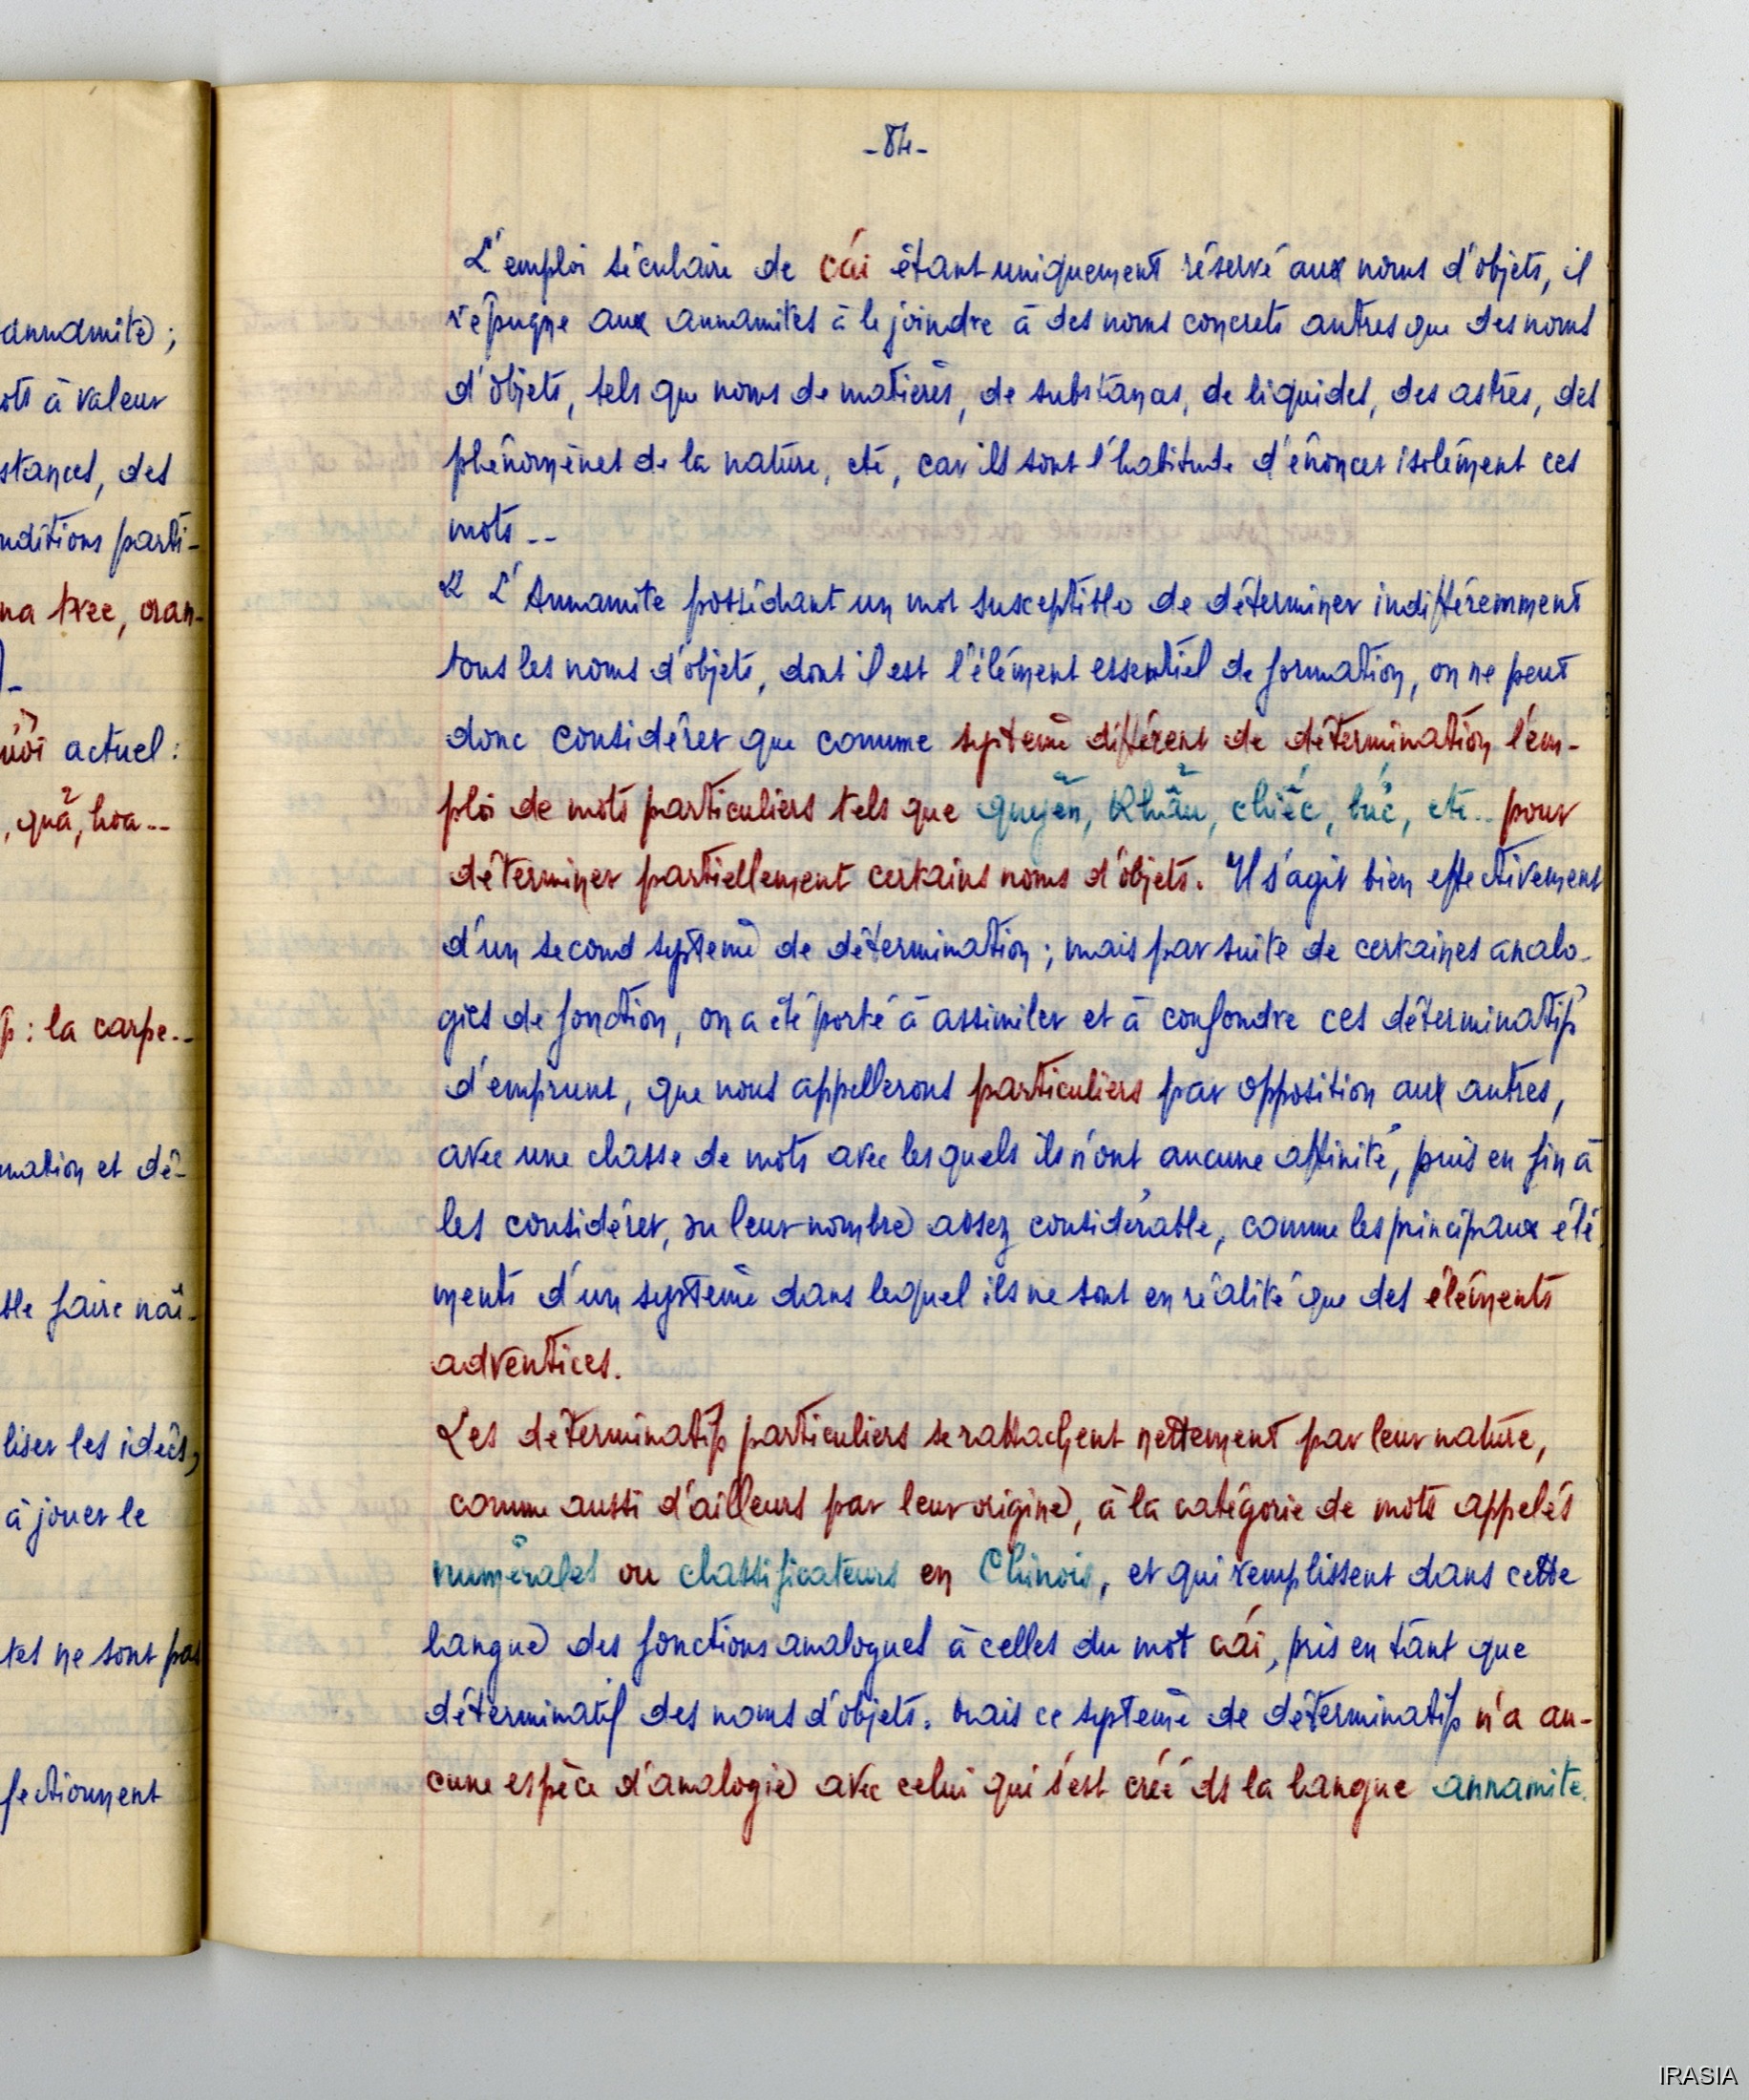 annamite);
ots à valeur
stances, des
nditions parti-
na tree, oran-
actuel :
, quả, hoa --
: la carpe --
mation et dé-
ble faire naî-
liser les idées,
à jouer le
tes ne sont pas
fectionnent
- 84 -
L'emploi séculaire de cái étant uniquement réservé aux noms d'objets, il
répugne aux annamites à le joindre à des noms concrets autres que des noms
d'objets, tels que noms de matières, de substances, de liquides, des astres, des
phénomènes de la nature, etc, car ils sont l'habitude d'énoncer isolément ces
mots --
L'Annamite possédant un mot susceptible de déterminer indifféremment
tous les noms d'objets, dont il est l'élément essentiel de formation, on ne peut
donc considérer que comme système différent de détermination l'em-
ploi de mots particuliers tels que quyển, Khẩu, chiếc, bức, etc.. pour
déterminer partiellement certains noms d'objets. Il s'agit bien effectivement
d'un second système de détermination ; mais par suite de certaines analo-
gies de fonction, on a été porté à assimiler et à confondre ces déterminatifs
d'emprunt, que nous appellerons particuliers par opposition aux autres,
avec une classe de mots avec lesquels ils n'ont aucune affinité, puis en fin à
les considérer, vu leur nombre assez considérable, comme les principaux élé
ments d'un système dans lequel ils ne sont en réalité que des éléments
adventices.
Les déterminatifs particuliers se rattachent nettement par leur nature,
comme aussi d'ailleurs par leur origine, à la catégorie de mots appelés
numérales ou classificateurs en Chinois, et qui remplissent dans cette
langue des fonctions analogues à celles du mot cái, pris en tant que
déterminatif des noms d'objets. Mais ce système de déterminatifs n'a au-
cune espèce d'analogie avec celui qui s'est créé ds la langue annamite.
IRASIA